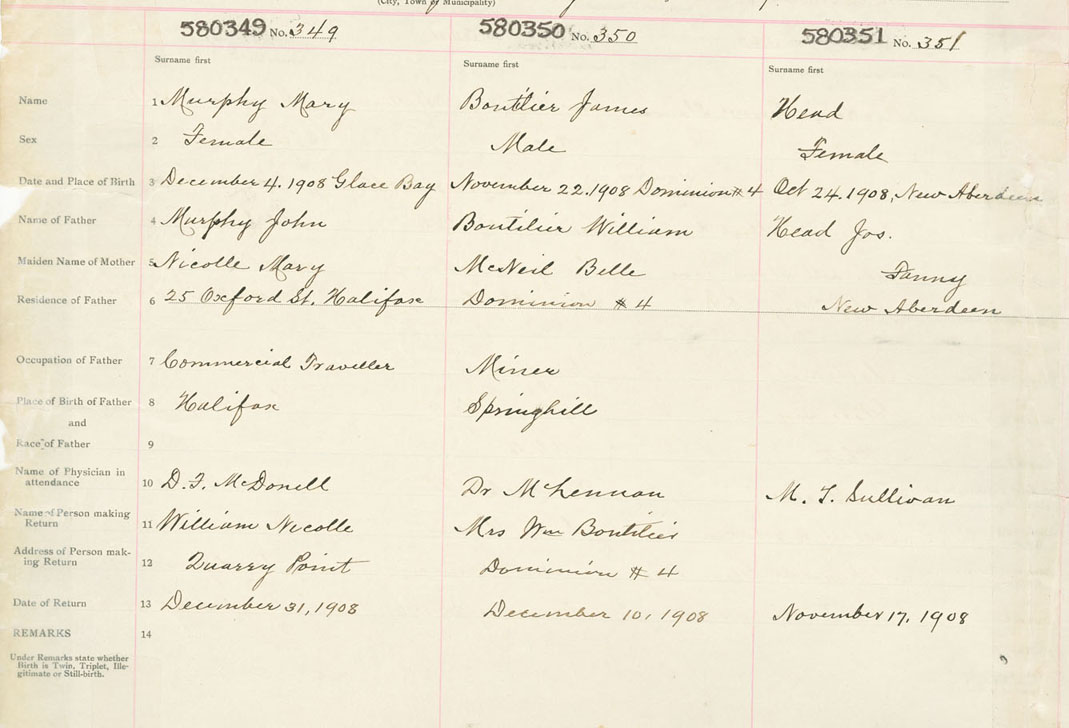 (City, Town or Municipality)
580349 No. 349 580350 No. 350 580351 No. 351
Surname first Surname first Surname first
Name 1 Murphy Mary Boutilier James Head
Sex 2 Female Male Female
Date and Place of Birth 3 December 4. 1908 Glace Bay November 22. 1908 Dominion # 4 Oct 24. 1908, New Aberdeen
Name of Father 4 Murphy John Boutilier William Head Jos.
Maiden Name of Mother 5 Nicolle Mary McNeil Belle Fanny
Residence of Father 6 25 Oxford St. Halifax Dominion # 4 New Aberdeen
Occupation of Father 7 Commercial Traveller Miner
Place of Birth of Father 8 Halifax Springhill
and
Race of Father 9
Name of Physician in
attendance 10 D. F. McDonell Dr McLennan M. T. Sullivan
Name of Person making
Return 11 William Nicolle Mrs Wm Boutilier
Address of Person mak-
ing Return 12 Quarry Point Dominion # 4
Date of Return 13 December 31, 1908 December 10, 1908 November 17, 1908
REMARKS 14
Under Remarks state whether
Birth is Twin, Triplet, Ille-
gitimate or Still-birth.